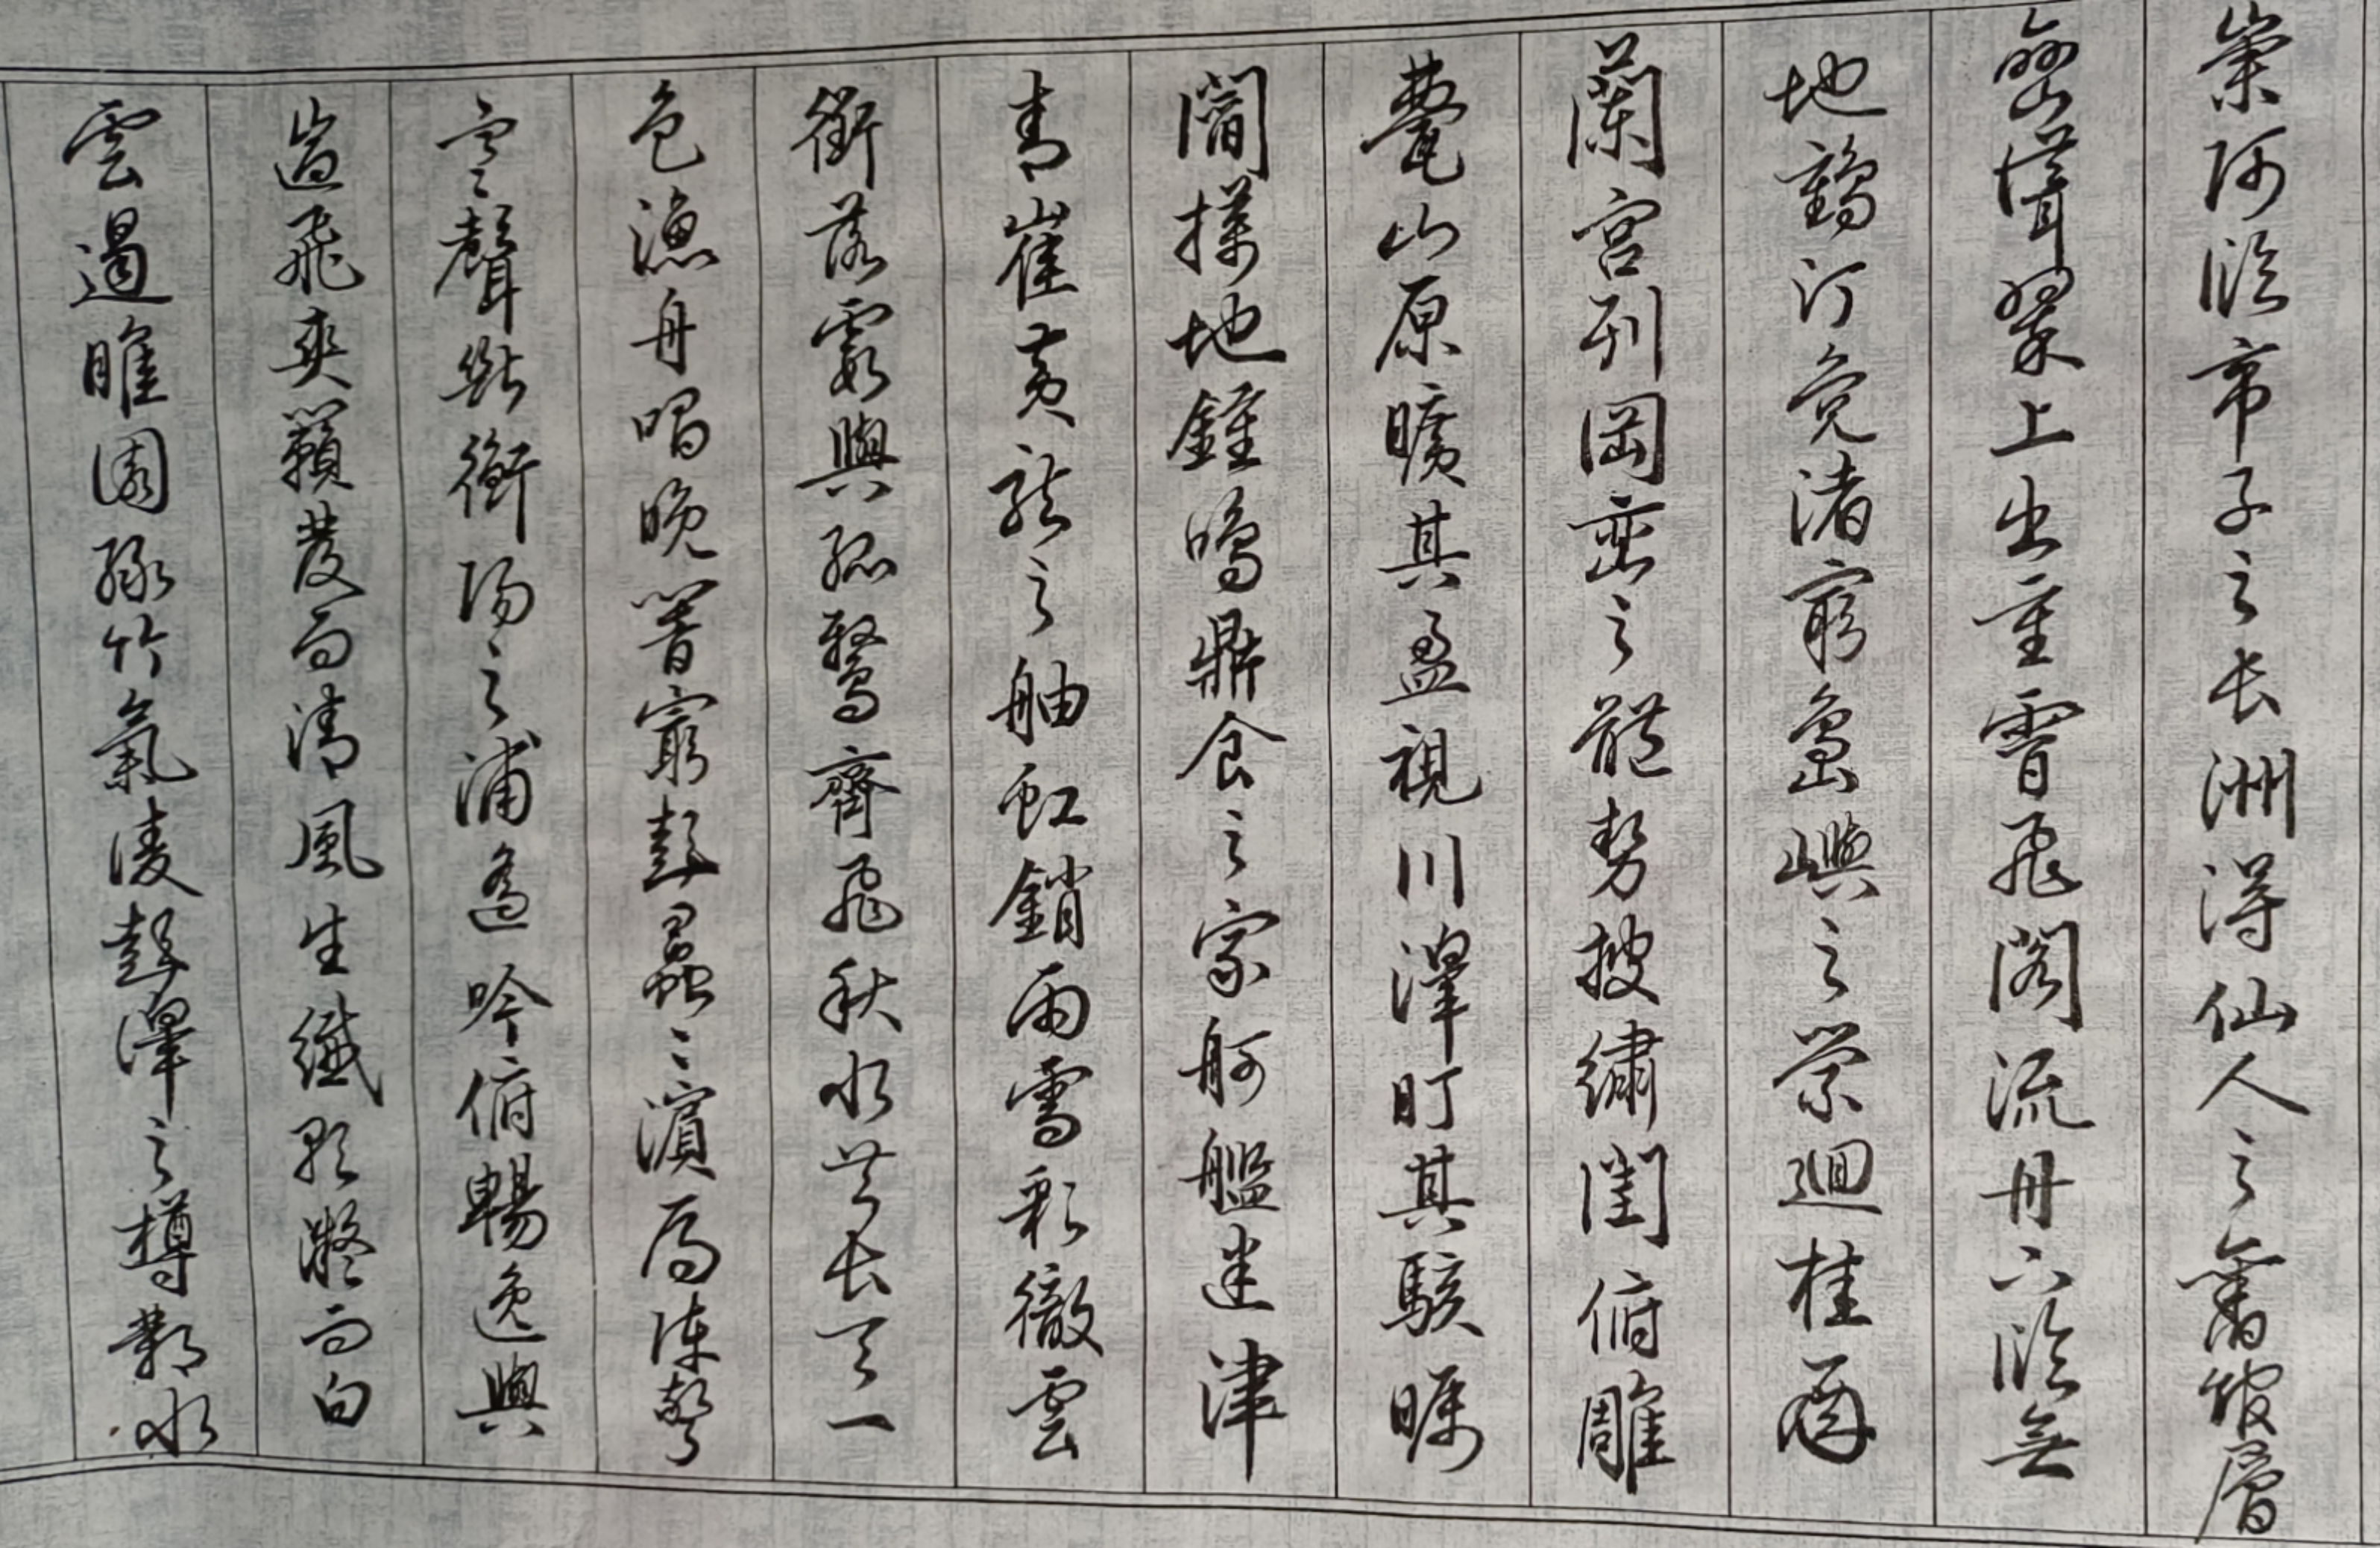 崇阿臨帝子之長洲得仙人之舊館層
巒聳翠上出重霄飛閣流丹下臨無
地鶴汀鳧渚窮島嶼之縈迴桂殿
蘭宮列岡巒之體勢披繡闥俯雕
甍山原曠其盈視川澤盱其駭矚
閭撲地鐘鳴鼎食之家舸艦迷津
青崔黃龍之舳虹銷雨霽彩徹雲
衢落霞與孤鶩齊飛秋水共長天一
色漁舟唱晚響窮彭蠡之濱雁陣驚
寒聲斷衡陽之浦遙吟俯暢逸興
遄飛爽籟發而清風生纖歌凝而白
雲遏睢園綠竹氣凌彭澤之樽鄴水